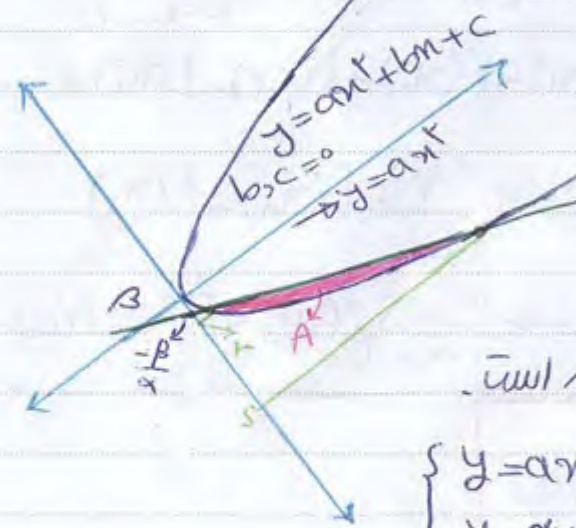 y=ax²+bx+c
b,c=0
⇒ y=ax²
B
A
r
s
است.
{ y=ax